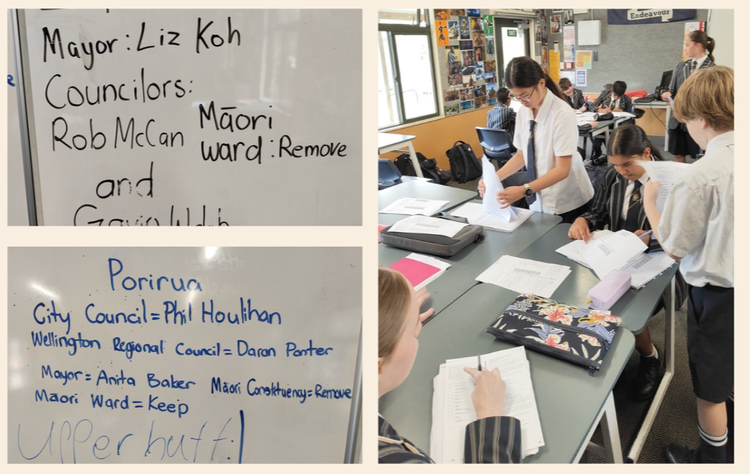 Mayor: Liz Koh
Councilors:
Rob McCan
Māori
ward: Remove
and
Gavin
Porirua
City Council = Phil Houlihan
Wellington Regional Council = Daran Ponter
Mayor = Anita Baker
Māori Constituency = Remove
Māori Ward = Keep
Upper hutt:
Endeavour